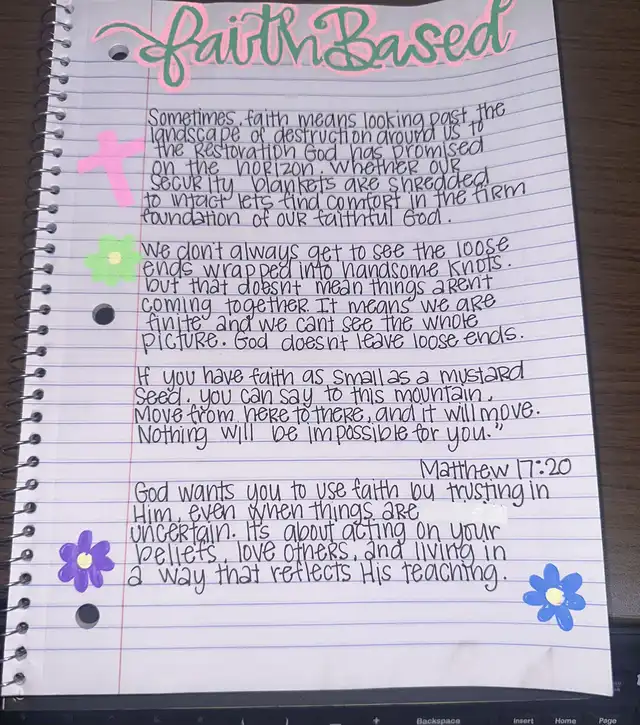 Faith Based
Sometimes, faith means looking past the
landscape of destruction around us to
the Restoration God has promised
on the horizon. Whether our
security blankets are shredded
to intact lets find comfort in the firm
foundation of our faithful God.
We don't always get to see the loose
ends wrapped into handsome knots.
but that doesnt mean things arent
coming together. It means we are
finite and we cant see the whole
picture. God doesnt leave loose ends.
If you have faith as small as a mustard
seed, you can say to this mountain,
Move from here to there, and it will move.
Nothing will be impossible for you."
Matthew 17:20
God wants you to use faith by trusting in
Him, even when things are
uncertain. It's about acting on your
beliefs, love others, and living in
a way that reflects His teaching.
Backspace Insert Home Page